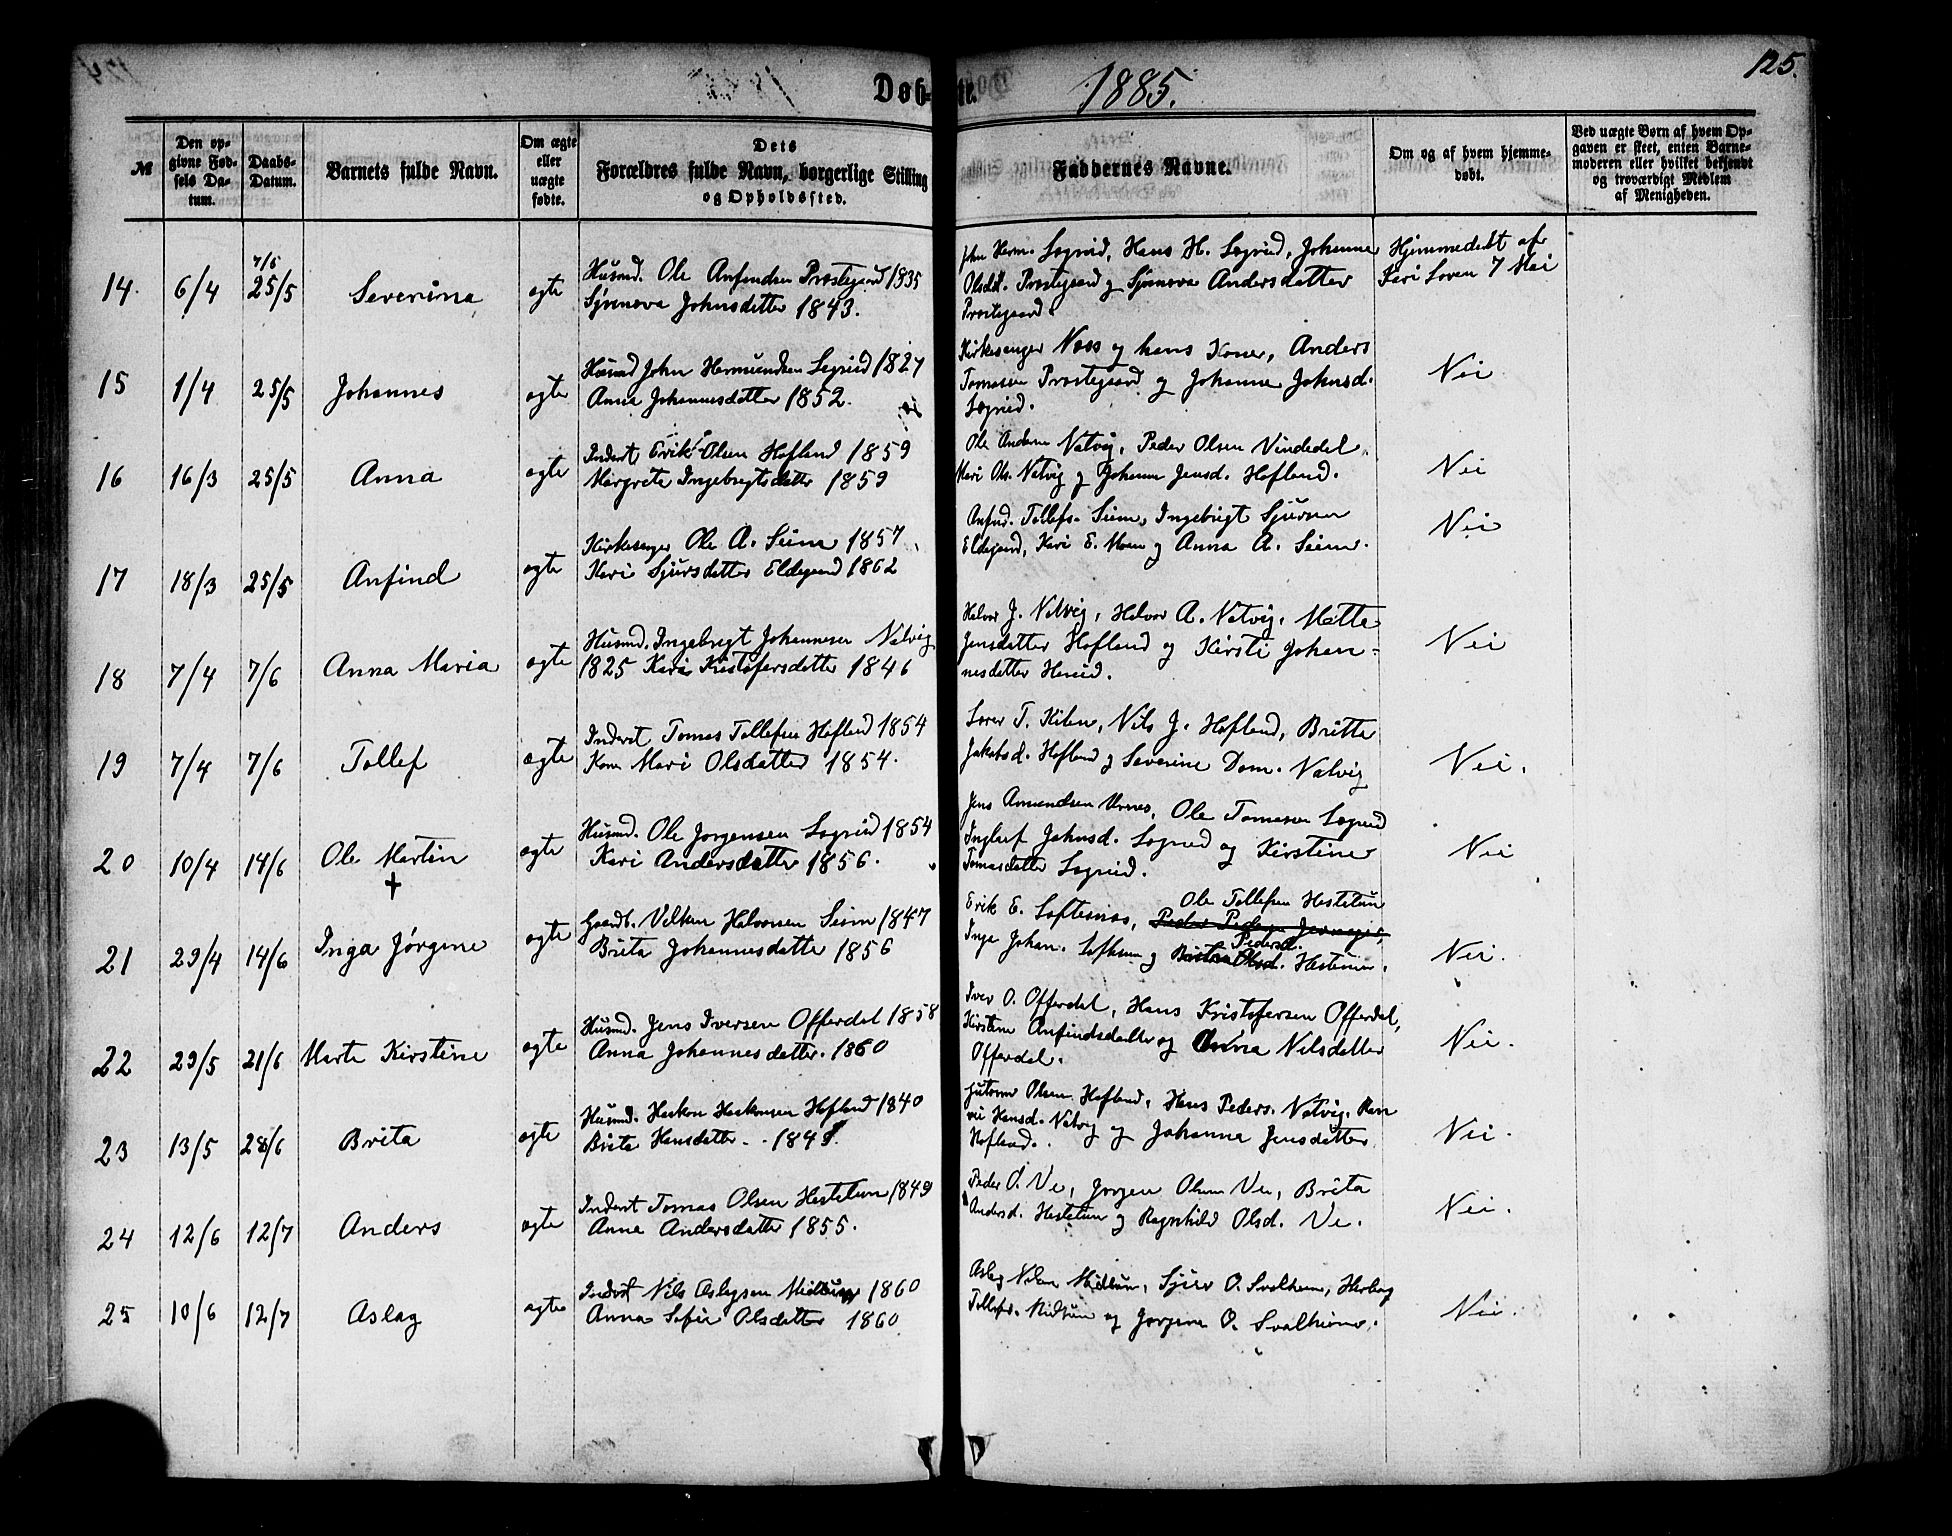 125.
Døbte. 1885.
№
Den op-
givne Fød-
sels Da-
tum.
Daabs-
Datum.
Barnets fulde Navn.
Om ægte
eller
uægte
fødte.
Dets
Forældres fulde Navn, borgerlige Stilling
og Opholdssted.
Faddernes Navne.
Om og af hvem hjemme-
døbt.
Ved uægte Børn af hvem Op-
gaven er skeet, enten Barne-
moderen eller hvilket bekjendt
og troværdigt Medlem
af Menigheden.
14. 6/4 7/5 25/5 Severina ægte
Husmd. Ole Anfindsen Prestegaard 1835
Sjørenova Johnsdatter 1843.
John Herm. Sogrid, Hans H. Sogrid, Johanne
Olsdt. Prestegaard og Sjørenova Andersdatter
Prestegaard.
Hjemmedøbt af
Kari Loven 7 Mai
15 1/4 25/5 Johannes ægte
Husmd John Hermundsen Sogrid 1827
Anna Johannesdatter 1852.
Kirkesanger Næss og hans Kone, Anders
Tomasen Prestegaard og Johanne Johnsd.
Sogrid.
Nei
16 16/3 25/5 Anna ægte
Inderst Erik Olsen Hofland 1859
Margreta Ingebrigtsdatter 1859
Ole Anders Natvig, Peder Olsen Vindedal,
Mari Ols. Natvig og Johanne Jensd. Hofland.
Nei
17 18/3 25/5 Anfind ægte
Kirkesanger Ole A. Seim 1857
Kari Sjursdatter Eldegard 1862
Anfind. Tollefs. Seim, Ingebrigt Sjursen
Eldegard, Kari E. Moen og Anna A. Seim.
Nei
18 7/4 7/6 Anna Maria ægte
Husmd. Ingebrigt Johannesen Natvig
1825 Kari Kristofersdatter 1846
Halvor J. Natvig, Halvor A. Natvig, Mette
Jensdatter Hofland og Kirsti Johan-
nesdatter Hereid.
Nei
19 7/4 7/6 Tollef ægte
Inderst Tomas Tollefsen Hofland 1854
Kone Mari Olsdatter 1854.
T. Kilen, Nils J. Hofland, Britta
Jakobsd. Hofland og Severine Dom. Natvig
Nei.
20 10/4 14/6 Ole Martin
+
ægte
Husmd. Ole Jørgensen Sogrid 1854
Kari Andersdatter 1856.
Jens Amundsen Urnes, Ole Tomasen Sogrid
Johnsd. Sogrid og Kirstine
Tomasdatter Sogrid.
Nei
21 29/4 14/6 Inga Jørgine ægte
Gaardb. Villum Halvorsen Seim 1847
Brita Johannesdatter 1856
Erik E. Loftesnæs, Ole Tollefsen Hestetun
Inga Johan. Loftesnæs og Pedersd. Hestetun.
Nei.
22 29/5 21/6 Marta Kirstine ægte
Husmd. Jens Iversen Offerdal 1858
Anna Johannesdatter. 1860
Iver O. Offerdal, Hans Kristofersen Offerdal,
Kirstine Anfindsdatter og Anna Nilsdatter
Offerdal.
Nei.
23 13/5 28/6 Brita ægte
Husmd. Haakon Haakonsen Hofland 1840
Brita Hansdatter
Guttorm Olsen Hofland, Hans Peders. Natvig, Ran
vei Hansd. Natvig og Johanna Jensdatter
Hofland.
Nei.
24 12/6 12/7 Anders ægte
Inderst Tomas Olsen Hestetun 1849
Anna Andersdatter 1855.
Peder O. Ve, Jørgen Olsen Ve, Brita
Andersd. Hestetun og Ragnhild Olsd. Ve.
Nei.
25 10/6 12/7 Aslag ægte
Inderst Nils Aslagsen Midtun 1860
Anna Sofie Olsdatter 1860
Aslag Nilsen Midtun, Sjur O. Svalheim, Herborg
Tollefsd. Midtun og Jorgine O. Svalheim.
Nei.